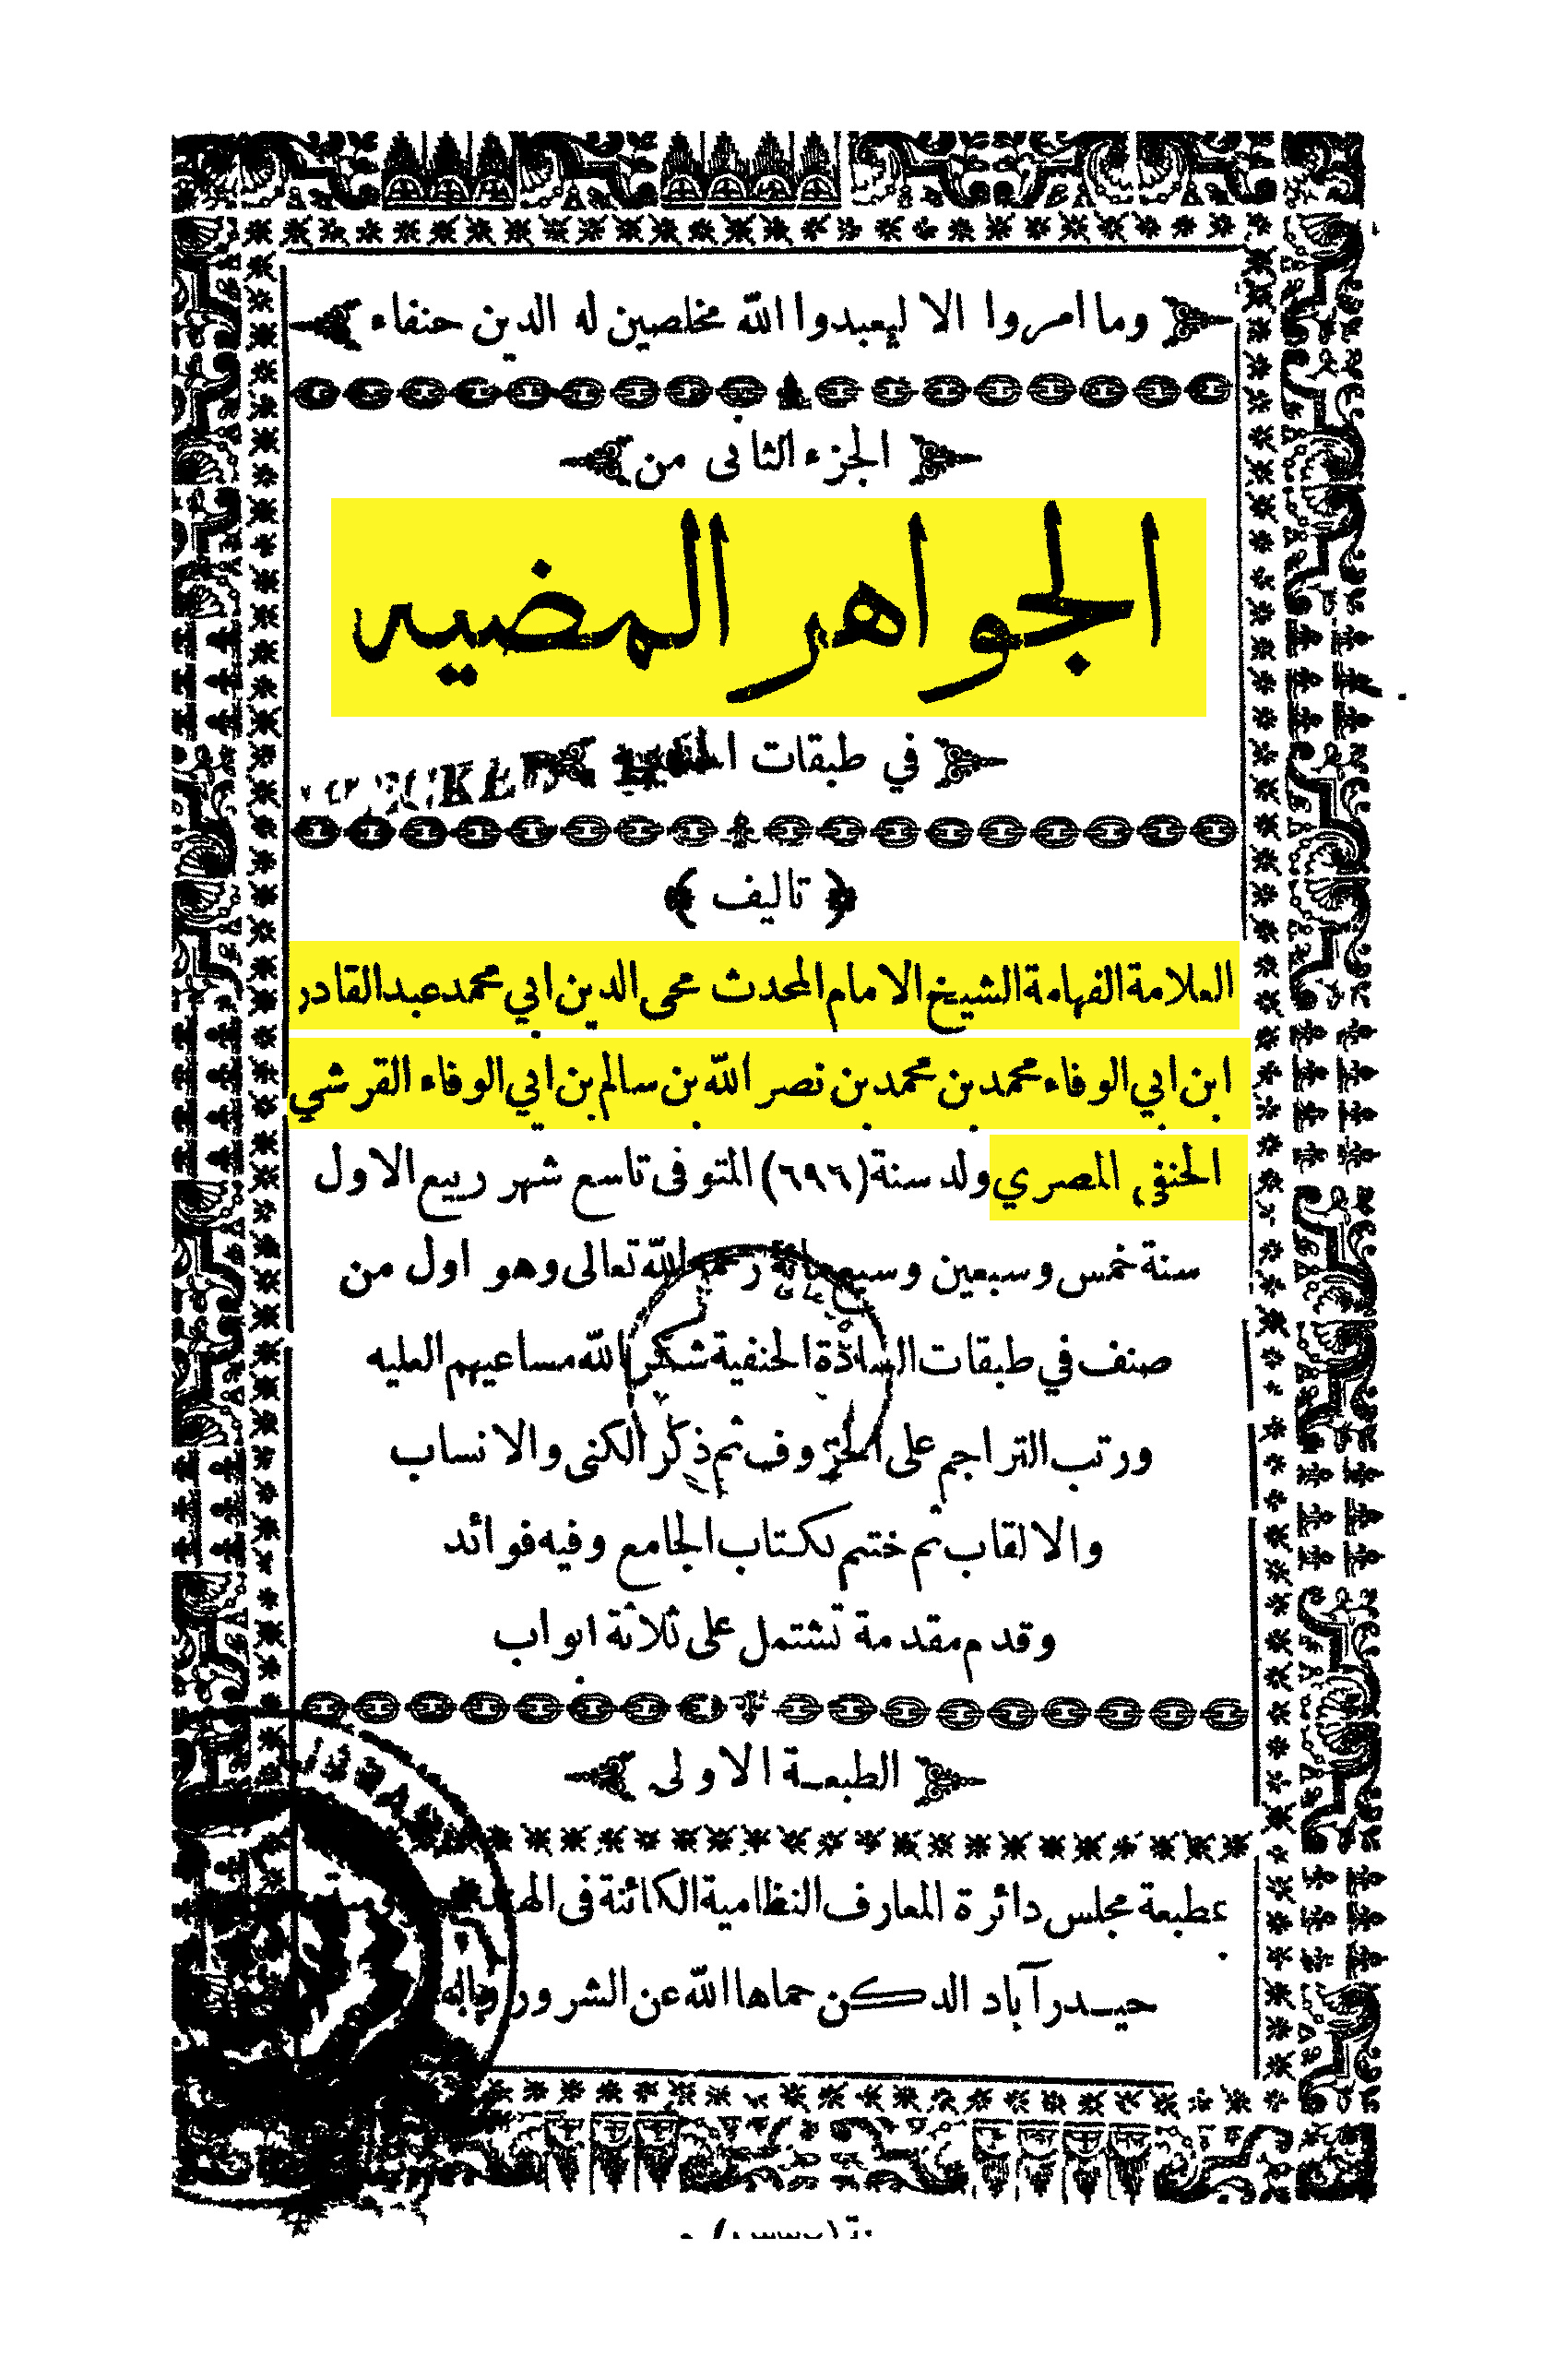 وما امروا الا ليعبدوا الله مخلصين له الدين حنفاء
الجزء الثانى من
الجواهر المضيه
في طبقات
تاليف
العلامة الفهامة الشيخ الامام المحدث محى الدين ابي محمد عبد القادر
ابن ابي الوفاء محمد بن محمد بن نصر الله بن سالم بن ابي الوفاء القرشي
الحنفي المصري ولد سنة (٦٩٦) المتوفى تاسع شهر ربيع الاول
سنة خمس وسبعين وسبعمائة رحمه الله تعالى وهو اول من
صنف في طبقات السادة الحنفية شكر الله مساعيهم العليه
ورتب التراجم على الحروف ثم ذكر الكنى والانساب
والالقاب ثم ختم بكتاب الجامع وفيه فوائد
وقدم مقدمة تشتمل على ثلاثة ابواب
الطبعة الاولى
بمطبعة مجلس دائرة المعارف النظامية الكائنة فى
حيدرآباد الدكن حماها الله عن الشرور